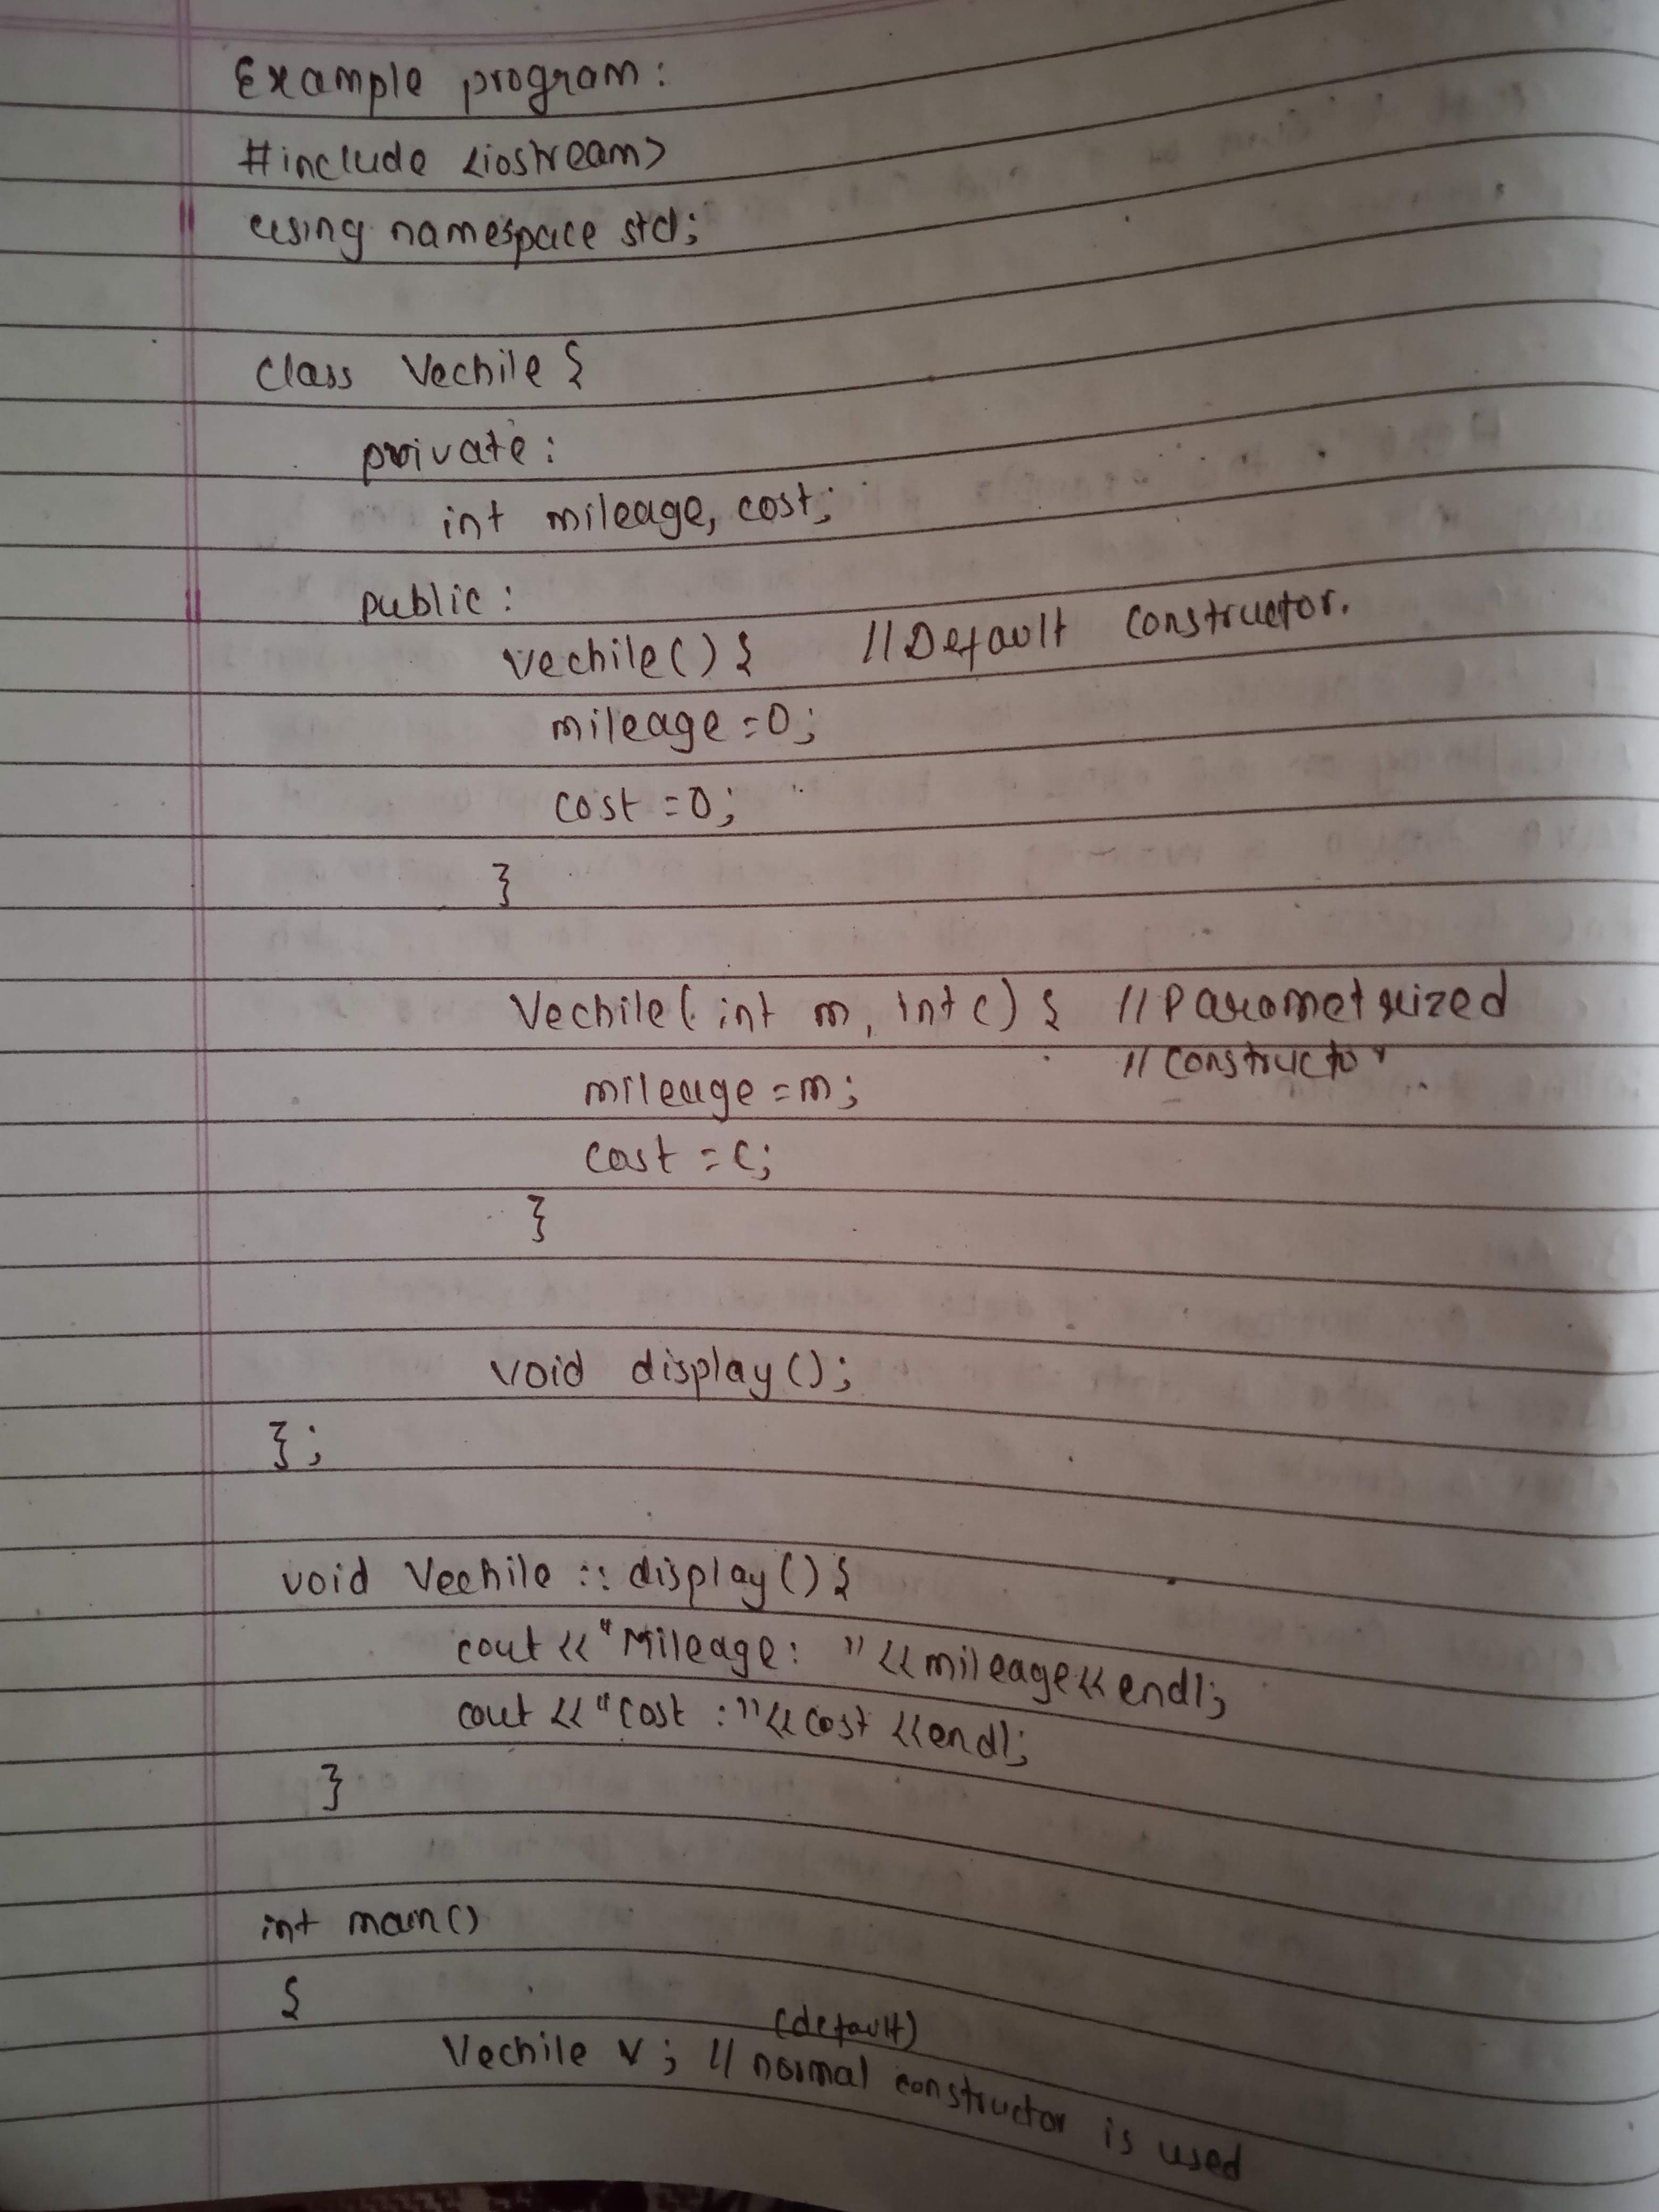 Example program:
#include <iostream>
using namespace std;
class Vechile {
private:
int mileage, cost;
public:
Vechile() { //Default constructor.
mileage=0;
cost=0;
}
Vechile(int m, int c) { //Parametrized
//constructor
mileage=m;
cost=c;
}
void display();
};
void Vechile :: display() {
cout << "Mileage: "<<mileage<<endl;
cout << "cost :"<<cost <<endl;
}
int main()
{
(default)
Vechile v; // normal constructor is used